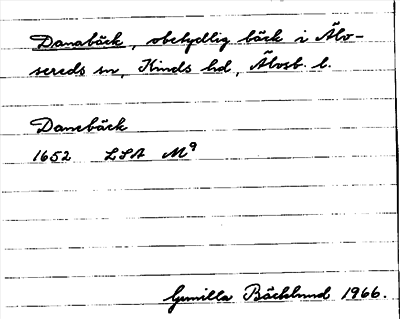 Danabäck, obetydlig bäck i Älv-
sereds sn, Kinds hd, Älvsb. l.
Danebäck
1652 LSA M⁹
Gunilla Bäcklund 1966.